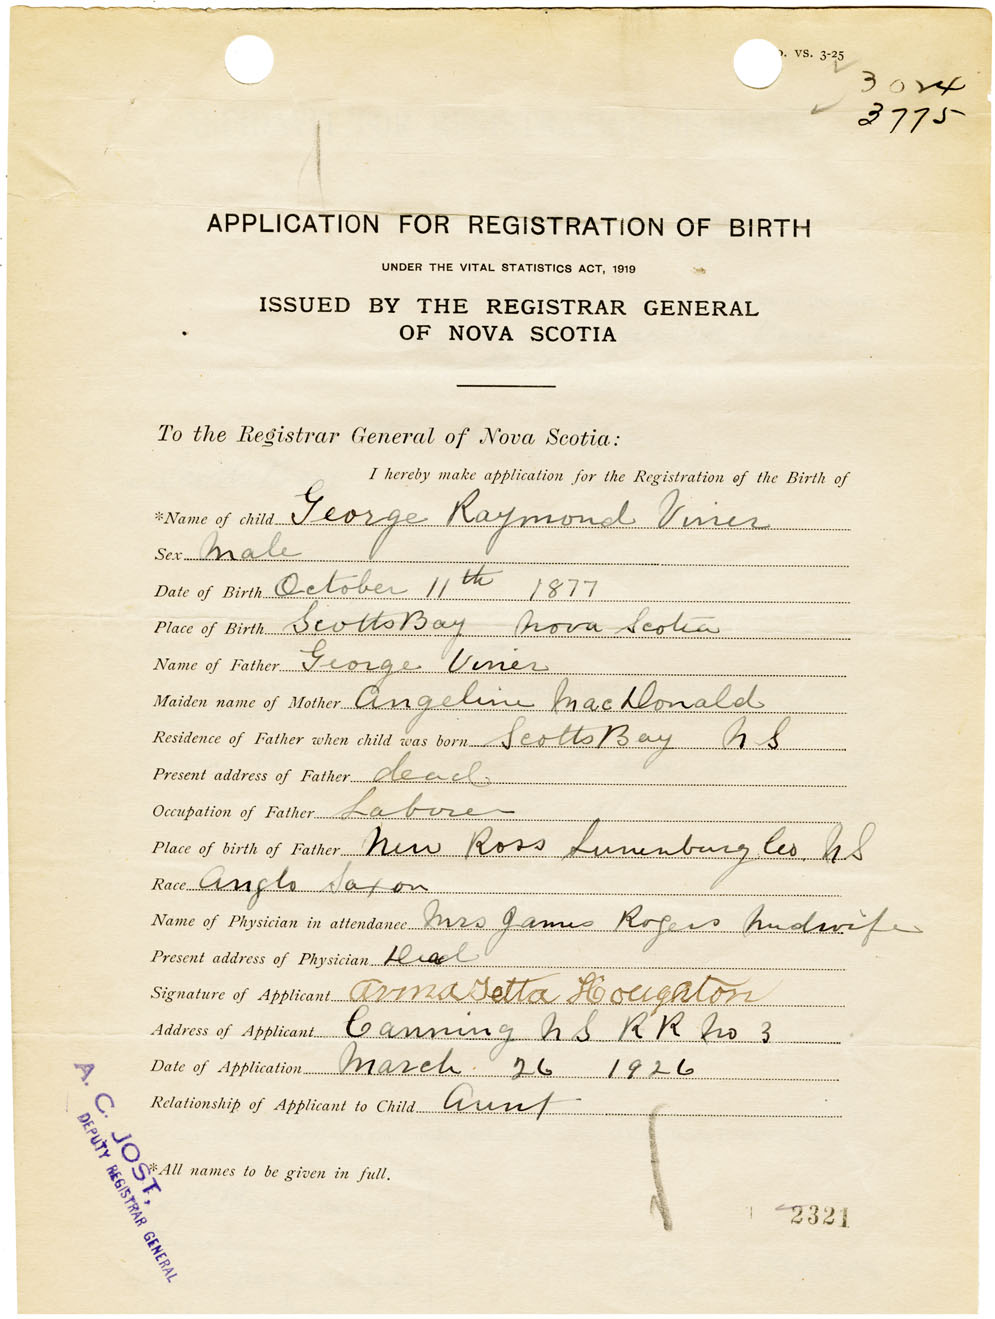 o. VS. 3-25
3024
3775
APPLICATION FOR REGISTRATION OF BIRTH
UNDER THE VITAL STATISTICS ACT, 1919
ISSUED BY THE REGISTRAR GENERAL
OF NOVA SCOTIA
To the Registrar General of Nova Scotia:
I hereby make application for the Registration of the Birth of
*Name of child George Raymond Viner
Sex Male
Date of Birth October 11th 1877
Place of Birth Scotts Bay Nova Scotia
Name of Father George Viner
Maiden name of Mother Angeline MacDonald
Residence of Father when child was born Scotts Bay N S
Present address of Father dead
Occupation of Father Laborer
Place of birth of Father New Ross Lunenburg Co. N S
Race Anglo Saxon
Name of Physician in attendance Mrs James Rogers Midwife
Present address of Physician Dead
Signature of Applicant Houghton
Address of Applicant Canning N S R R No 3
Date of Application March 26 1926
Relationship of Applicant to Child Aunt
*All names to be given in full.
A. C. JOST,
DEPUTY REGISTRAR GENERAL
2321